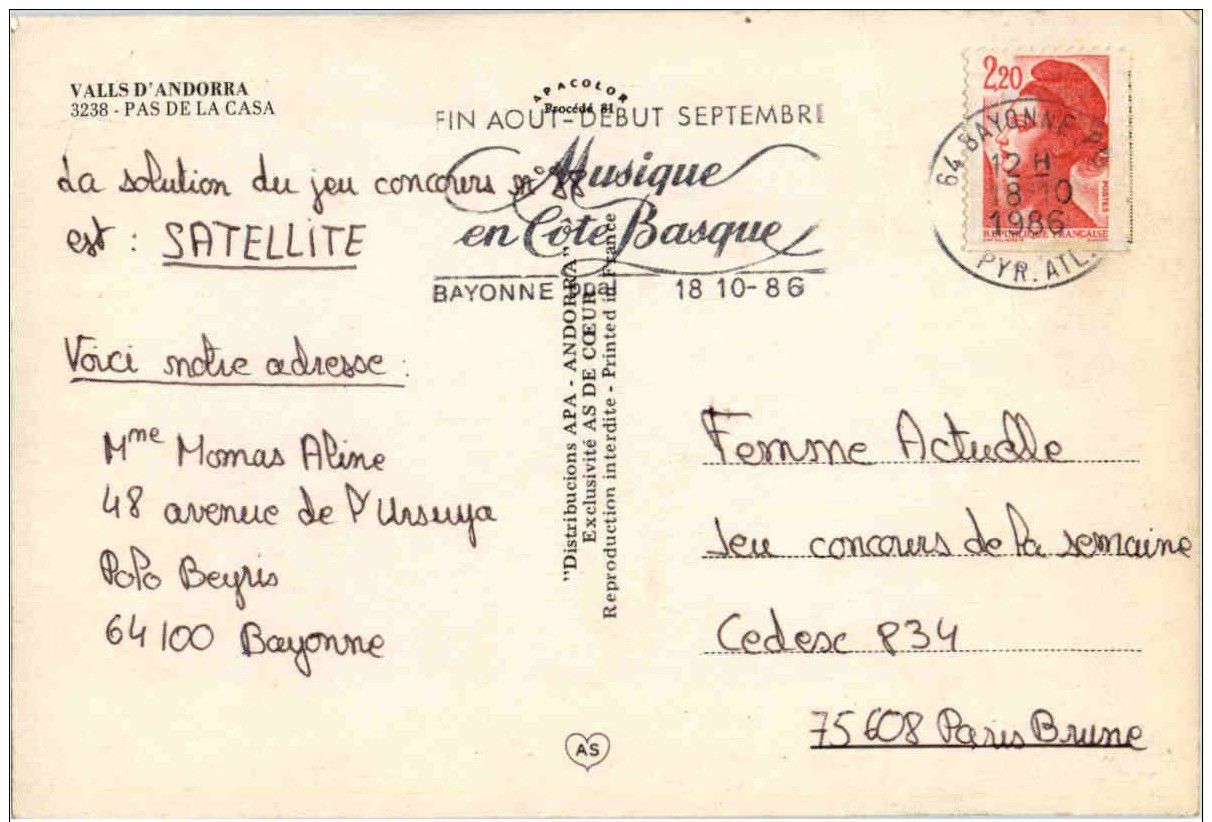 VALLS D'ANDORRA
3238 - PAS DE LA CASA
APACOLOR
Procédé 81
FIN AOUT-DEBUT SEPTEMBRE
Musique
en Côte Basque
BAYONNE ppal 18 10-86
2,20
POSTES
REPUBLIQUE FRANÇAISE
64 BAYONNE
12 H
18-10
1986
PYR. ATL.
La solution du jeu concours n° 88
est : SATELLITE
Voici notre adresse :
Mme Momas Aline
48 avenue de l'Ursuya
Polo Beyris
64100 Bayonne
"Distribucions APA - ANDORRA"
Exclusivité AS DE CŒUR
Reproduction interdite - Printed in France
Femme Actuelle
Jeu concours de la semaine
Cedesc P34
75608 Paris Brune
AS